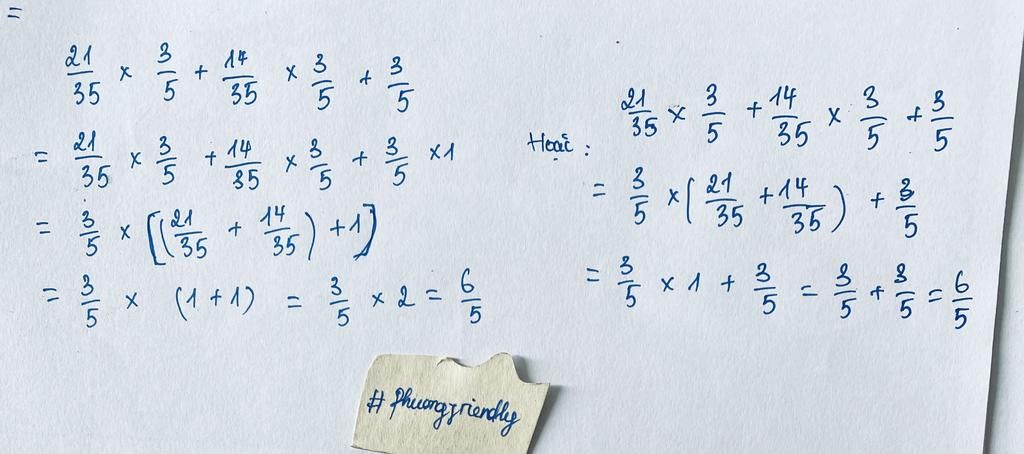 =
21/35 × 3/5 + 14/35 × 3/5 + 3/5
= 21/35 × 3/5 + 14/35 × 3/5 + 3/5 × 1
= 3/5 × [(21/35 + 14/35) + 1]
= 3/5 × (1 + 1) = 3/5 × 2 = 6/5
Hoặc :
21/35 × 3/5 + 14/35 × 3/5 + 3/5
= 3/5 × (21/35 + 14/35) + 3/5
= 3/5 × 1 + 3/5 = 3/5 + 3/5 = 6/5
# phuongfriendly